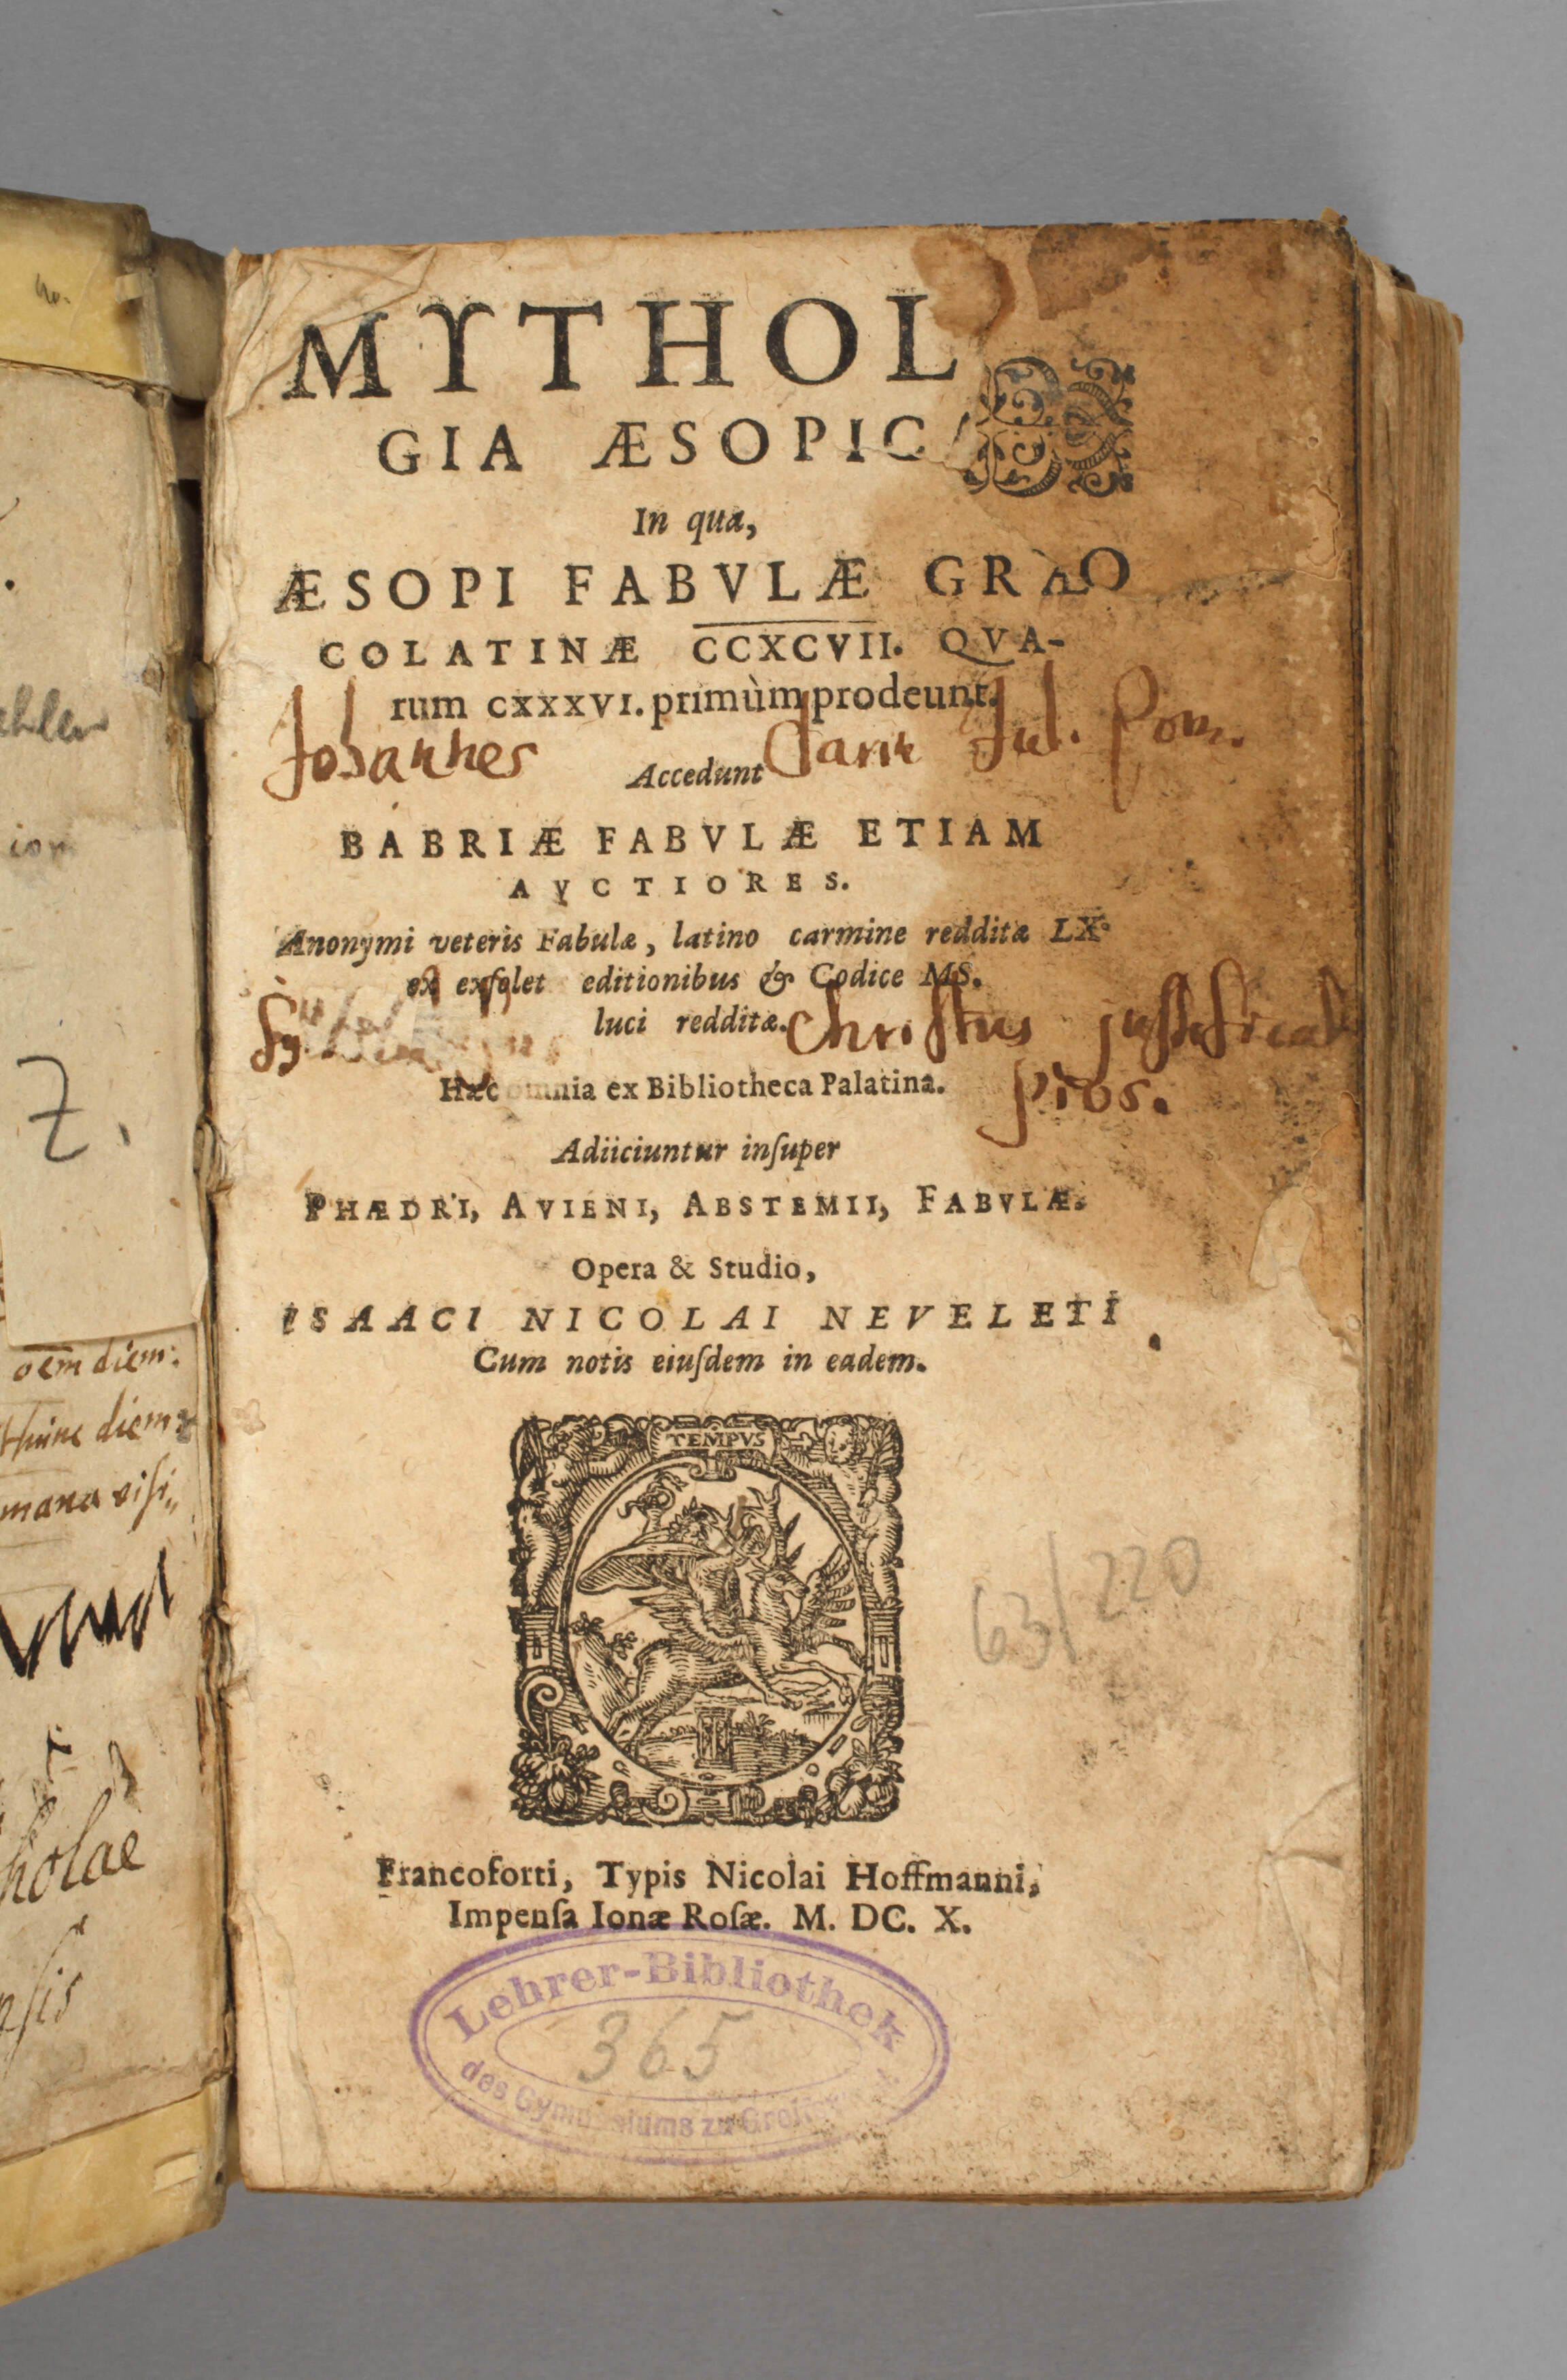 MYTHOL
GIA ÆSOPIC
In qua,
ÆSOPI FABVLÆ GRÆO
COLATINÆ CCXCVII. QVA-
rum CXXXVI. primùm prodeunt.
Johannes Jul. Pom.
Accedunt
BABRIÆ FABVLÆ ETIAM
AVCTIORES.
Anonymi veteris Fabulæ, latino carmine redditæ LX.
ex exſolet editionibus & Codice MS.
luci redditæ.
Christus justificat
pios.
Hæc omnia ex Bibliotheca Palatina.
Adiiciuntur inſuper
PHÆDRI, AVIENI, ABSTEMII, FABVLÆ.
Opera & Studio,
ISAACI NICOLAI NEVELETI
Cum notis eiuſdem in eadem.
TEMPVS
63/220
Francoforti, Typis Nicolai Hoffmanni,
Impenſa Ionæ Roſæ. M. DC. X.
Lehrer-Bibliothek
365
des Gymnasiums zu
Z.
diem.
diem
holae